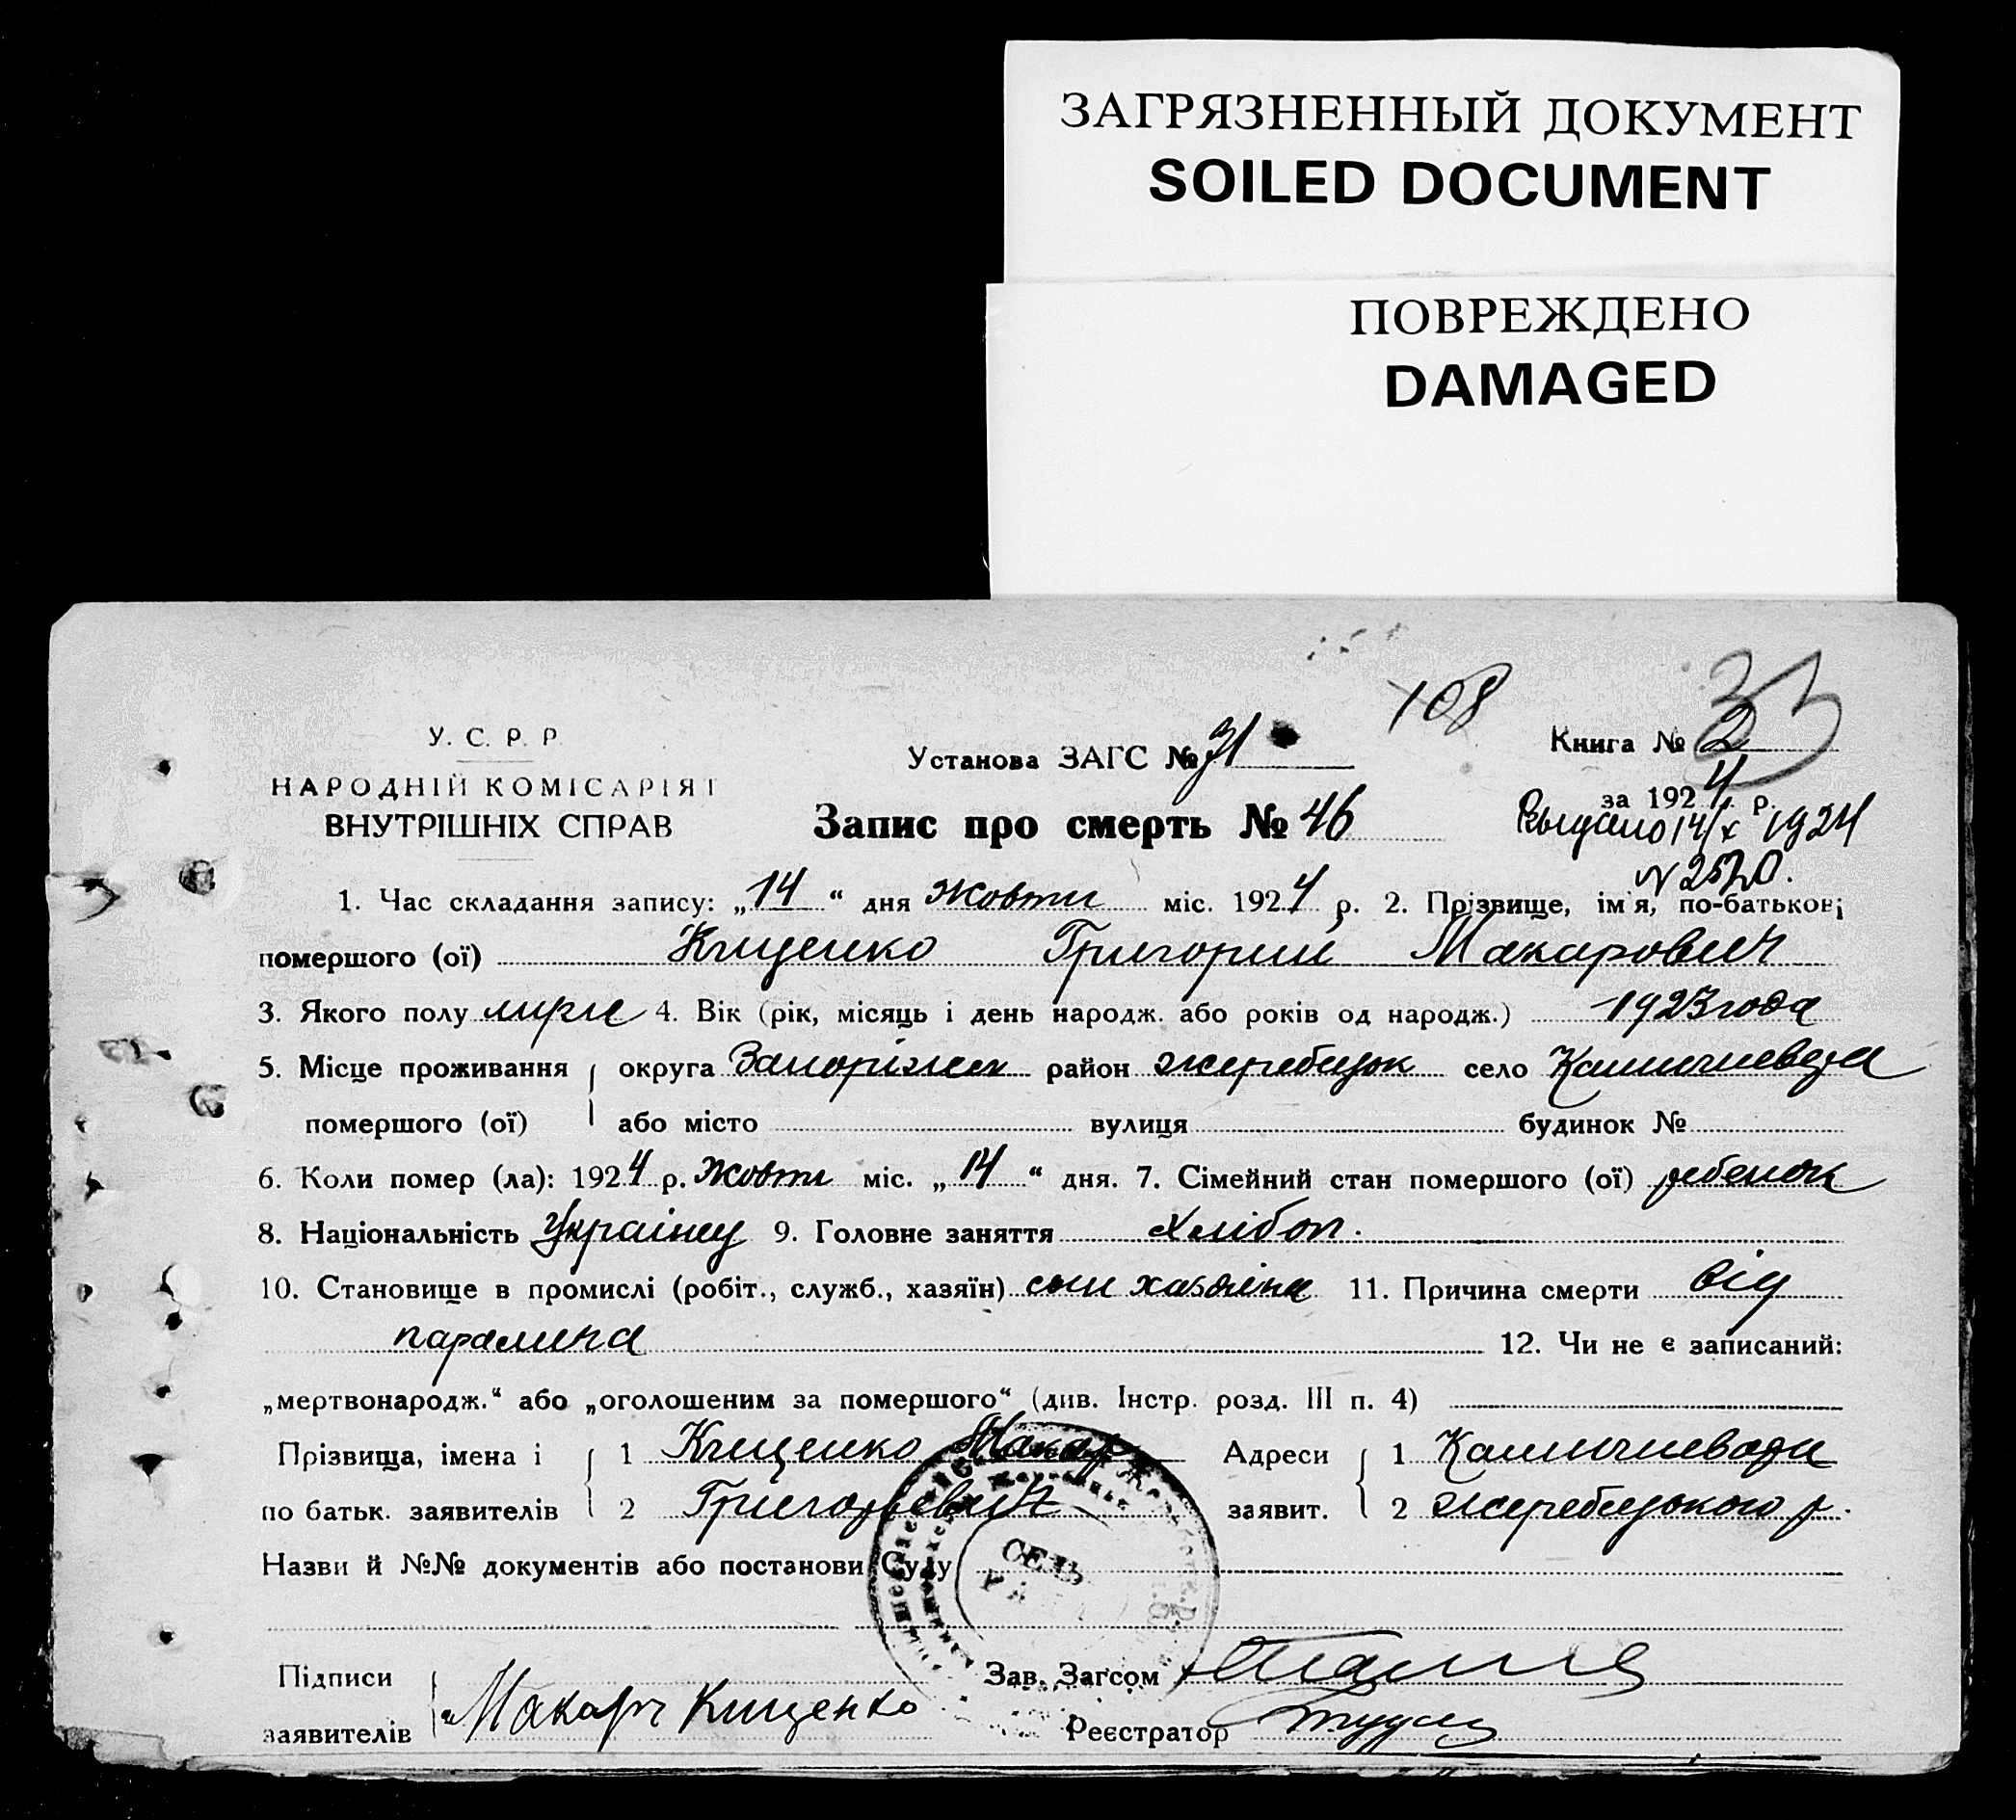 ЗАГРЯЗНЕННЫЙ ДОКУМЕНТ
SOILED DOCUMENT
ПОВРЕЖДЕНО
DAMAGED
108
33
У. С. Р. Р.
НАРОДНІЙ КОМІСАРІЯТ
ВНУТРІШНІХ СПРАВ
Установа ЗАГС № 31
Книга № 2
за 1924 р.
Запис про смерть № 46
Выдано 14/X 1924
N 2520.
1. Час складання запису: „14“ дня Жовтн міс. 1924 р. 2. Прізвище, ім'я, по-батькові
помершого (ої) Кищенко Григорий Макарович
3. Якого полу 4. Вік (рік, місяць і день народж. або років од народж.) 1923 года
5. Місце проживання округа Запоріжск район жеребецьк село Камишеваха
помершого (ої) або місто вулиця будинок №
6. Коли помер (ла): 1924 р. Жовтн міс. „14“ дня. 7. Сімейний стан помершого (ої) ребенок
8. Національність Українец 9. Головне заняття хлібоп.
10. Становище в промислі (робіт., служб., хазяїн) син хазяіна 11. Причина смерти від
паралича 12. Чи не є записаний:
„мертвонародж.“ або „оголошеним за помершого“ (див. Інстр. розд. III п. 4)
Прізвища, імена і 1 Кищенко Макар Адреси 1
по батьк. заявителів 2 Григорьевич заявит. 2 жеребецького р.
Назви й №№ документів або постанови Суду
СЕЛЬ
Підписи Зав. Загсом
заявителів Макарь Кищенко Реєстратор